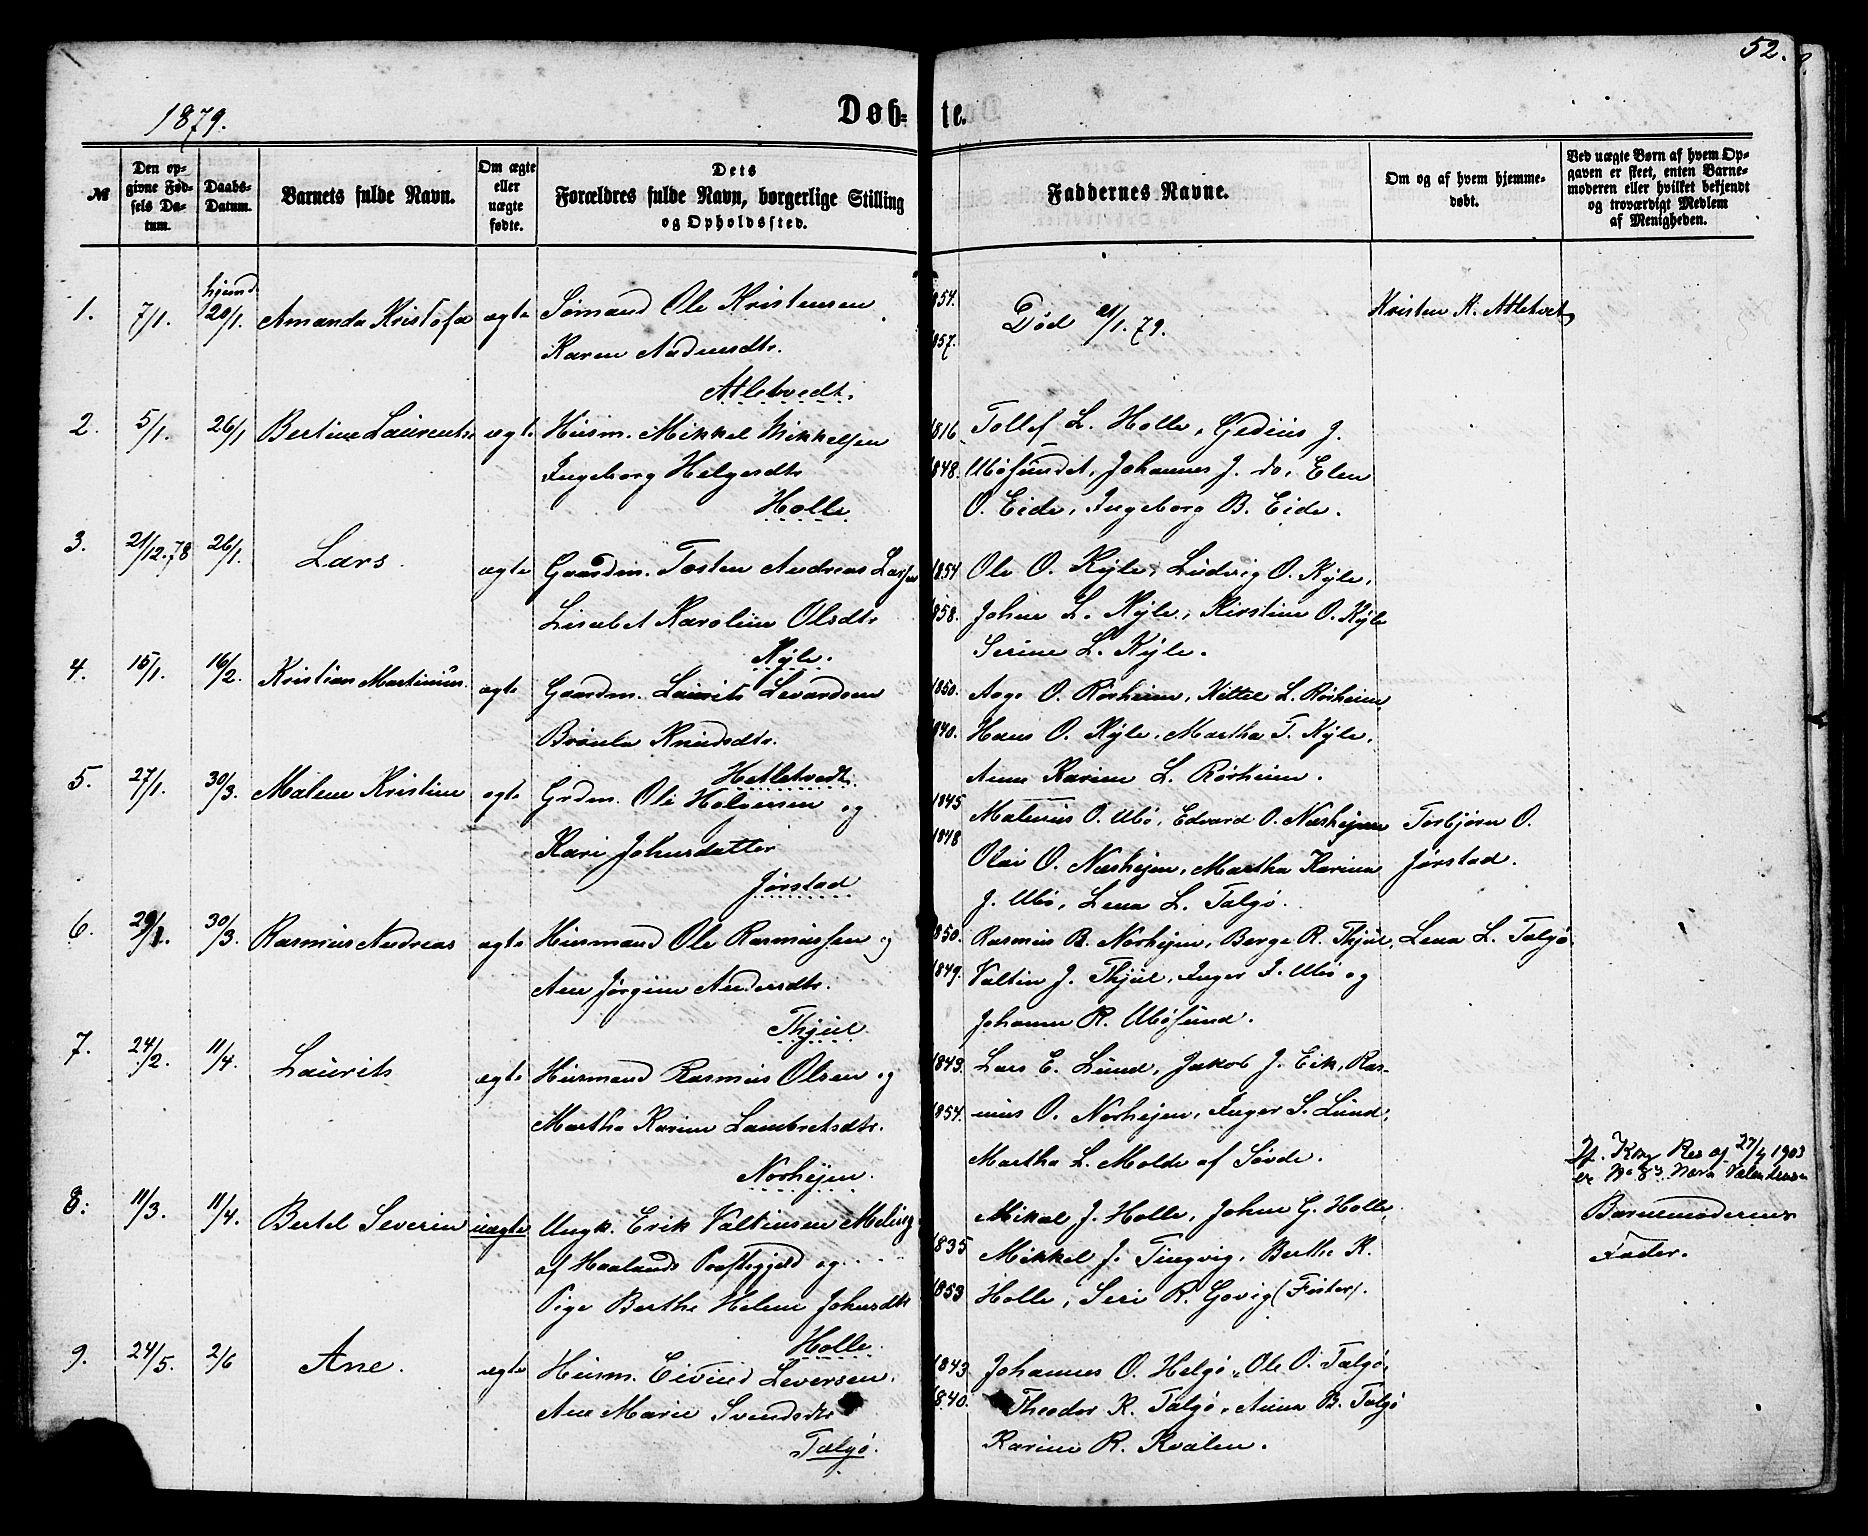 52.
1879.
Døbte.
№
Den opgivne Fødsels Datum.
Daabs-Datum.
Barnets fulde Navn.
Om ægte eller uægte fødte.
Dets Forældres fulde Navn, borgerlige Stilling og Opholdssted.
Faddernes Navne.
Om og af hvem hjemmedøbt.
Ved uægte Børn af hvem Opgaven er skeet, enten Barnemoderen eller hvilket bekjendt og troværdigt Medlem af Menigheden.
1. 7/1. hjemd. 20/1. Amanda Kristofa ægte Sømand Ole Kristensen 1854. Død 21/1.79. Kristen K. Atletvet
Karen Andersdtr. 1857.
Atletvedt.
2. 5/1. 26/1 Bertine Laurentse ægte Husm. Mikkel Mikkelsen 1816. Tollef L. Holle, Gedius J.
Ingeborg Helgesdtr 1848. Ubøsundet, Johannes J. do, Elen
Holle. O. Eide, Ingeborg B. Eide.
3. 21/12.78 26/1. Lars ægte Gaardm. Tosten Andreas Larsen 1854 Ole O. Kyle, Ludvig O. Kyle,
Lisabet Karoline Olsdtr 1858. Johne L. Kyle, Kirstine O. Kyle
Kyle. Serine L. Kyle.
4. 15/1. 16/2. Kristian Martinius. ægte Gaardm. Laurits Levardsen 1850. Aage O. Rørheim, Kittel L. Rørheim
Brønla Knudsdtr. 1840. Hans O. Kyle, Martha T. Kyle,
Hetletvedt Anne Karine L. Rørheim.
5. 27/1. 30/3. Malene Kristine ægte Grdm. Ole Halvorsen og 1845 Matenius O. Ubø, Edvard O. Næshejen Torbjørn O.
Kari Johnsdatter 1848 Olai O. Næshejen, Martha Karina Jørstad.
Jørstad J. Ubø, Lena L. Talgø.
6. 29/1. 30/3. Rasmus Andreas ægte Husmand Ole Rasmussen og 1850. Rasmus B. Norhejen, Berge R. Thjul, Lena L. Talgø.
Ane Jørgine Andersdtr. 1849. Valtin J. Thjul, Inger J. Ubø og
Thjul. Johanne R. Ubøsund.
7. 24/2. 11/4. Laurits ægte Husmand Rasmus Olsen og 1843. Lars E. Lund, Jakob J. Eik, Ras-
Martha Karine Lambretsdtr. 1854. mus O. Norhejen, Inger S. Lund,
Norhejen. Martha L. Molde af Søvde.
8. 11/3. 11/4. Bertel Severin uægte Ungk. Erik Valtinsen Meling Mikal J. Holle, Johne G. Holle, Barnemoderens
af Haalands Præstegjeld og 1835 Mikkel J. Tingvig, Berthe K. Fader.
Pige Berthe Helene Johnsdtr 1853 Holle, Seri R. Govig (Foster).
Holle.
If. Kng Res af 27/4 1903
er No 8
9. 24/5. 2/6 Ane. ægte Husm. Eivind Leversen, 1843 Johannes O. Helgø, Ole O. Talgø,
Ane Marie Svendsdtr 1840. Theodor K. Talgø, Anna B. Talgø
Talgø. Karine R. Kvalen.